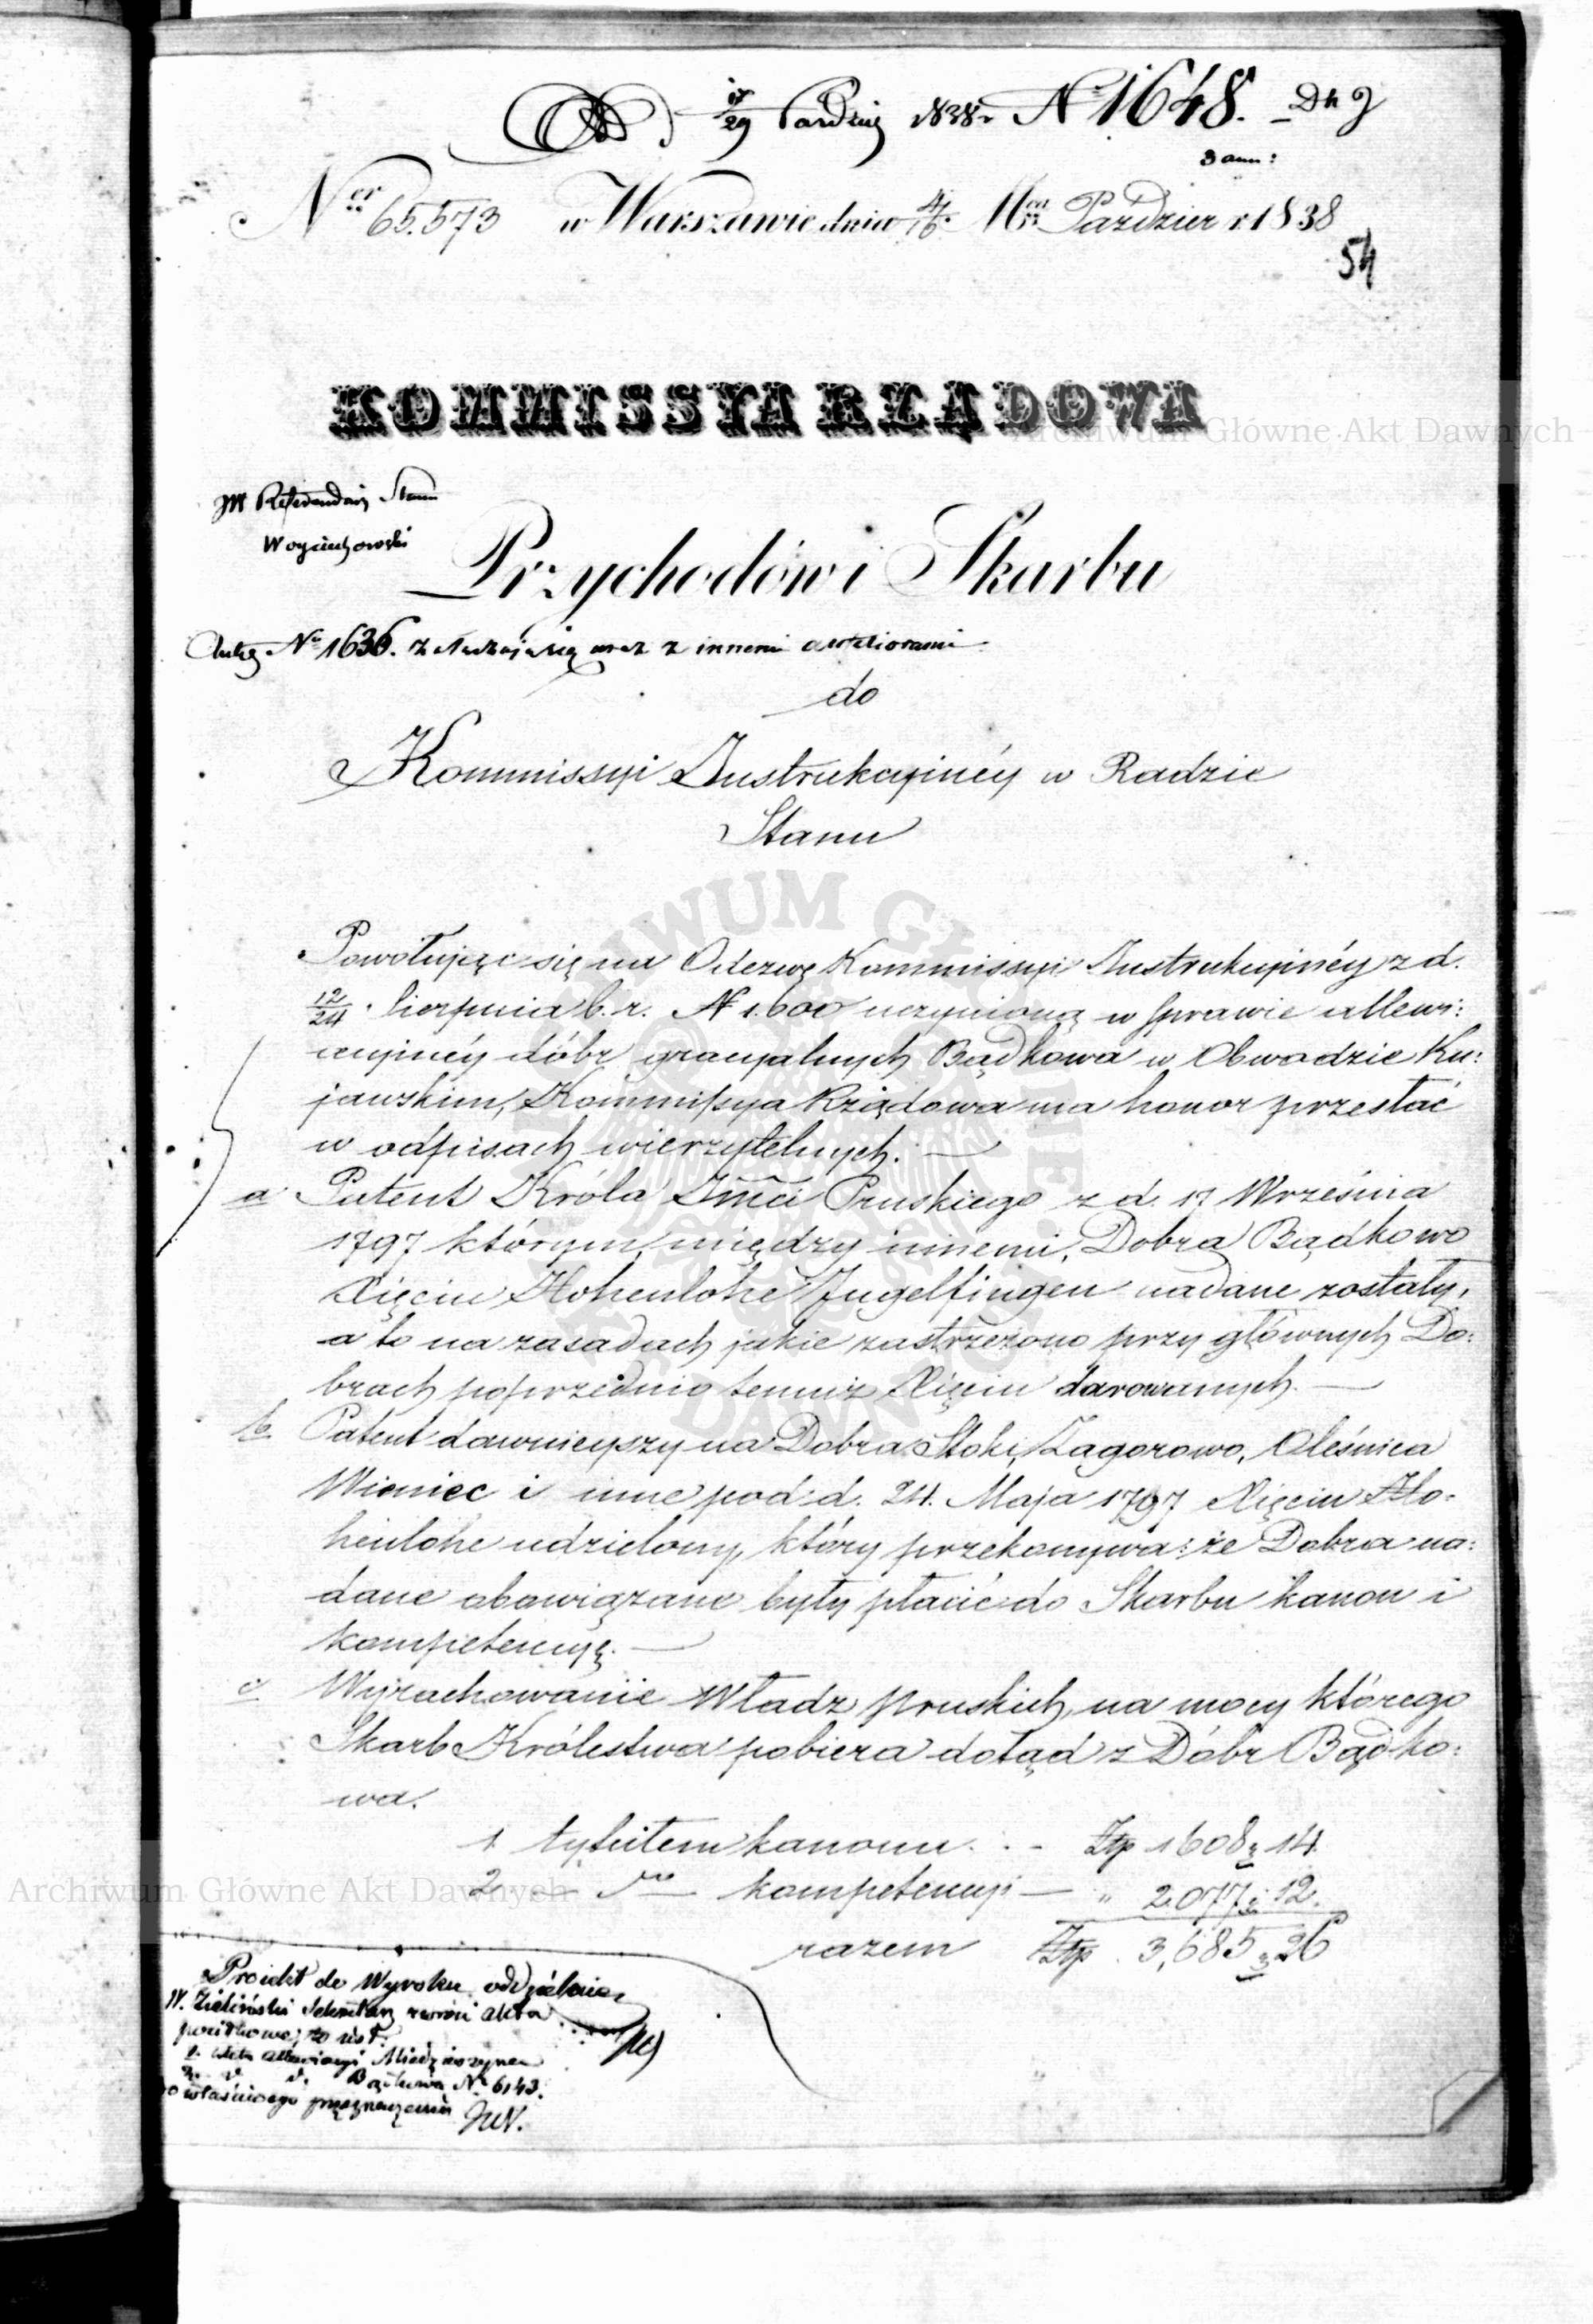 17/29 Paździer 1838 r. № 1648.
3 ann:
Ner 65.573 w Warszawie dnia 4/16 Mca Paździer r 1838
54
KOMMISSYA RZĄDOWA
JW Referendarz Stanu
Woyciechowski
Przychodów i Skarbu
№ 1636. z inneni
do
Kommissyi Instrukcyinéy w Radzie
Stanu
Powołując się na Odezwę Kommissyi Instrukcyinéy z d.
12/24 Sierpnia b. r. № 1.600 uczynioną w sprawie allewi:
acyinéy dóbr gracyalnych Bądkowa w Obwodzie Ku:
jawskim, Kommissya Rządowa ma honor przesłać
w odpisach wierzytelnych.
a Patent Króla Jmci Pruskiego z d. 17 Września
1797 którym, między innemi, Dobra Bądkowo
Xięciu Hohenlohe Jugelfingen nadane zostały,
a to na zasadach jakie zastrzeżono przy głównych Do:
brach poprzednio temuż Xięciu darowanych.
b Patent dawnieyszy na Dobra Stoki, Zagorowo, Oleśnica
Wieniec i inne pod d. 24. Maja 1797 Xięciu Ho-
henlohe udzielony, który przekonywa: że Dobra na:
dane obowiązane były płacić do Skarbu kanon i
kompetencyę.
c Wyrachowanie Władz pruskich, na mocy którego
Skarb Królestwa pobiera dotąd z Dóbr Bądko:
wa.
1 tytułem kanonu . . - Złp 1608 „ 14
2 — do — kompetencyi — „ 2077 „ 12.
razem Złp. 3,685 „ 26
Proiekt do Wyroku oddzielnie
W. Zieliński Sekretarz zwróci akta
1. Akta allewiacyi
2. d. d. Bądkowa № 6143.
do właściwego przeznaczenia
Archiwum Główne Akt Dawnych
Archiwum Główne Akt Dawnych
ARCHIWUM GŁÓWNE AKT DAWNYCH